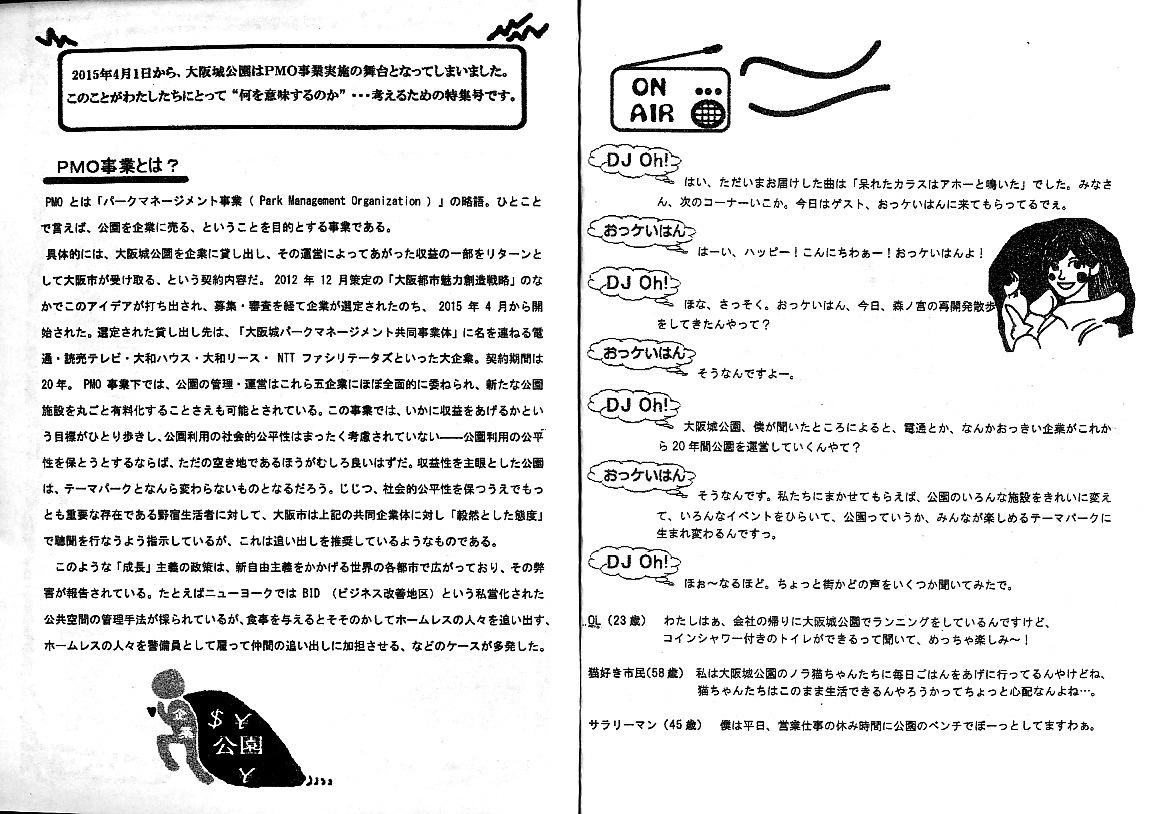 2015年4月1日から、大阪城公園はPMO事業実施の舞台となってしまいました。
このことがわたしたちにとって“何を意味するのか”・・・考えるための特集号です。
PMO事業とは?
PMO とは「パークマネージメント事業（ Park Management Organization ）」の略語。ひとこと
で言えば、公園を企業に売る、ということを目的とする事業である。
具体的には、大阪城公園を企業に貸し出し、その運営によってあがった収益の一部をリターンと
して大阪市が受け取る、という契約内容だ。 2012 年 12 月策定の「大阪都市魅力創造戦略」のな
かでこのアイデアが打ち出され、募集・審査を経て企業が選定されたのち、 2015 年 4 月から開
始された。選定された貸し出し先は、「大阪城パークマネージメント共同事業体」に名を連ねる電
通・読売テレビ・大和ハウス・大和リース・ NTT ファシリテータズといった大企業。契約期間は
20年。 PMO 事業下では、公園の管理・運営はこれら五企業にほぼ全面的に委ねられ、新たな公園
施設を丸ごと有料化することさえも可能とされている。この事業では、いかに収益をあげるかとい
う目標がひとり歩きし、公園利用の社会的公平性はまったく考慮されていない――公園利用の公平
性を保とうとするならば、ただの空き地であるほうがむしろ良いはずだ。収益性を主眼とした公園
は、テーマパークとなんら変わらないものとなるだろう。じじつ、社会的公平性を保つうえでもっ
とも重要な存在である野宿生活者に対して、大阪市は上記の共同企業体に対し「毅然とした態度」
で聴聞を行なうよう指示しているが、これは追い出しを推奨しているようなものである。
このような「成長」主義の政策は、新自由主義をかかげる世界の各都市で広がっており、その弊
害が報告されている。たとえばニューヨークでは BID （ビジネス改善地区）という私営化された
公共空間の管理手法が採られているが、食事を与えるとそそのかしてホームレスの人々を追い出す、
ホームレスの人々を警備員として雇って仲間の追い出しに加担させる、などのケースが多発した。
企業
$ 人
公園
人
ON
AIR
DJ Oh!
はい、ただいまお届けした曲は「呆れたカラスはアホーと鳴いた」でした。みなさ
ん、次のコーナーいこか。今日はゲスト、おっケいはんに来てもらってるでぇ。
おっケいはん
はーい、ハッピー！こんにちわぁー！おっケいはんよ！
DJ Oh!
ほな、さっそく。おっケいはん、今日、森ノ宮の再開発散歩
をしてきたんやって？
おっケいはん
そうなんですよー。
DJ Oh!
大阪城公園、僕が聞いたところによると、電通とか、なんかおっきい企業がこれか
ら 20 年間公園を運営していくんやて？
おっケいはん
そうなんです。私たちにまかせてもらえば、公園のいろんな施設をきれいに変え
て、いろんなイベントをひらいて、公園っていうか、みんなが楽しめるテーマパークに
生まれ変わるんですっ。
DJ Oh!
ほぉ～なるほど。ちょっと街かどの声をいくつか聞いてみたで。
OL（23 歳） わたしはぁ、会社の帰りに大阪城公園でランニングをしているんですけど、
コインシャワー付きのトイレができるって聞いて、めっちゃ楽しみ～！
猫好き市民(58 歳) 私は大阪城公園のノラ猫ちゃんたちに毎日ごはんをあげに行ってるんやけどね、
猫ちゃんたちはこのまま生活できるんやろうかってちょっと心配なんよね…。
サラリーマン（45 歳） 僕は平日、営業仕事の休み時間に公園のベンチでぼーっとしてますわぁ。